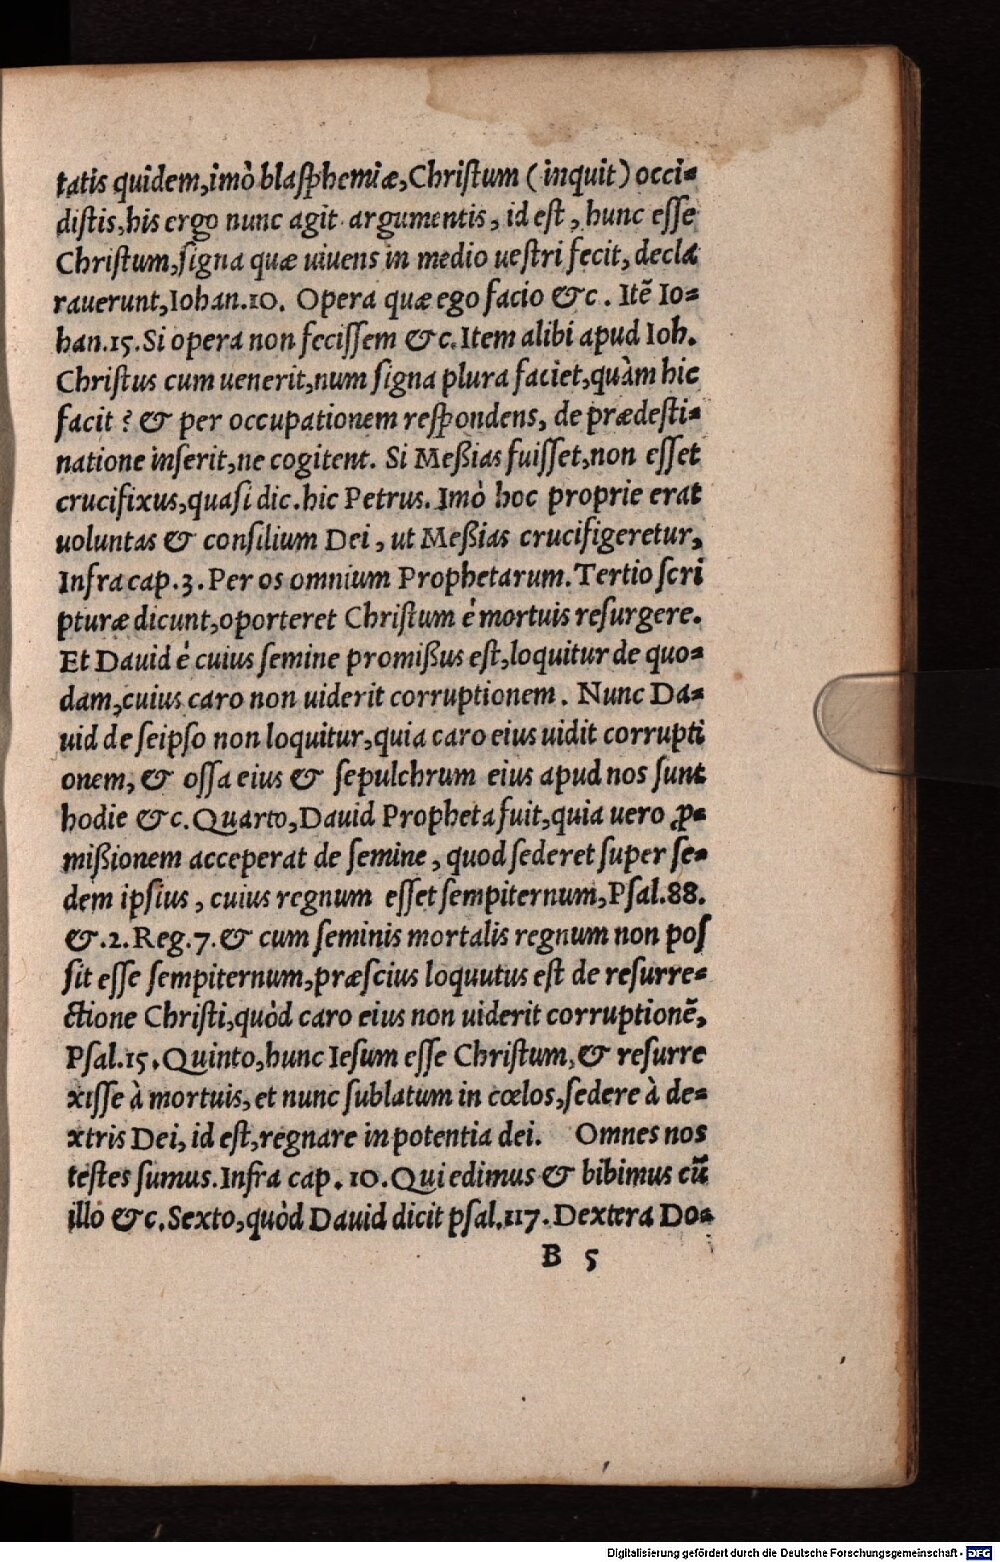 tatis quidem,imò blasphemiæ,Christum (inquit) occi-
distis,his ergo nunc agit argumentis, id est, hunc esse
Christum,signa quæ uiuens in medio uestri fecit, decla
rauerunt,Iohan.10. Opera quæ ego facio &c. Itẽ Io-
han.15.Si opera non fecissem &c.Item alibi apud Ioh.
Christus cum uenerit,num signa plura faciet,quàm hic
facit? & per occupationem respondens, de prædesti-
natione inserit,ne cogitent. Si Meßias fuisset,non esset
crucifixus,quasi dic.hic Petrus. Imò hoc proprie erat
uoluntas & consilium Dei, ut Meßias crucifigeretur,
Infra cap.3.Per os omnium Prophetarum.Tertio scri
pturæ dicunt,oporteret Christum è mortuis resurgere.
Et Dauid è cuius semine promißus est,loquitur de quo-
dam,cuius caro non uiderit corruptionem. Nunc Da-
uid de seipso non loquitur,quia caro eius uidit corrupti
onem, & ossa eius & sepulchrum eius apud nos sunt
hodie &c.Quarto,Dauid Propheta fuit,quia uero ꝓ-
mißionem acceperat de semine, quod sederet super se-
dem ipsius, cuius regnum esset sempiternum,Psal.88.
&.2.Reg.7.& cum seminis mortalis regnum non pos
sit esse sempiternum,præscius loquutus est de resurre-
ctione Christi,quòd caro eius non uiderit corruptionẽ,
Psal.15.Quinto,hunc Iesum esse Christum,& resurre
xisse à mortuis,et nunc sublatum in cœlos,sedere à de-
xtris Dei, id est,regnare in potentia dei. Omnes nos
testes sumus.Infra cap.10.Qui edimus & bibimus cũ
illo &c.Sexto,quòd Dauid dicit psal.117.Dextera Do-
B 5
Digitalisierung gefördert durch die Deutsche Forschungsgemeinschaft - DFG